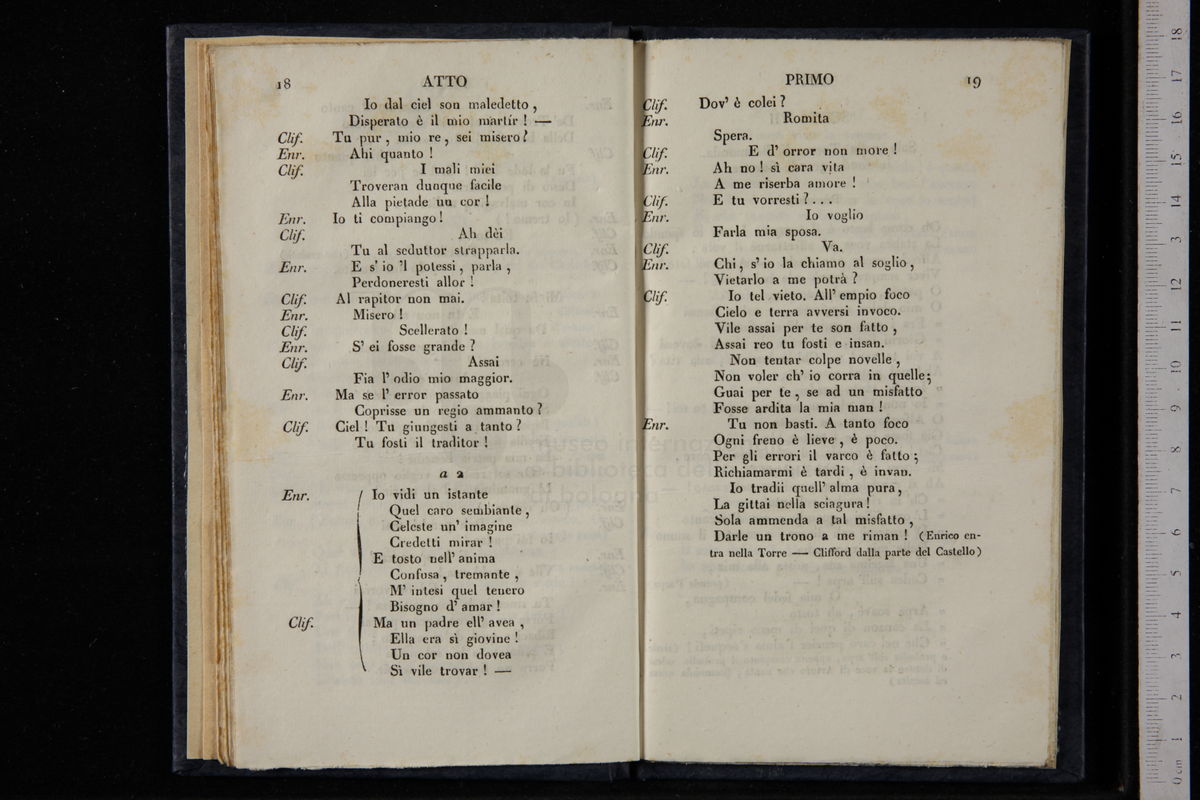 18
ATTO
Io dal ciel son maledetto,
Disperato è il mio martír! —
Clif. Tu pur, mio re, sei misero?
Enr. Ahi quanto!
Clif. I mali miei
Troveran dunque facile
Alla pietade un cor!
Enr. Io ti compiango!
Clif. Ah dèi
Tu al seduttor strapparla.
Enr. E s' io 'l potessi, parla,
Perdoneresti allor!
Clif. Al rapitor non mai.
Enr. Misero!
Clif. Scellerato!
Enr. S' ei fosse grande?
Clif. Assai
Fia l' odio mio maggior.
Enr. Ma se l' error passato
Coprisse un regio ammanto?
Clif. Ciel! Tu giungesti a tanto?
Tu fosti il traditor!
a 2
Enr. Io vidi un istante
Quel caro sembiante,
Celeste un' imagine
Credetti mirar!
E tosto nell' anima
Confusa, tremante,
M' intesi quel tenero
Bisogno d' amar!
Clif. Ma un padre ell' avea,
Ella era sì giovine!
Un cor non dovea
Sì vile trovar! —
PRIMO
19
Clif. Dov' è colei?
Enr. Romita
Spera.
Clif. E d' orror non more!
Enr. Ah no! sì cara vita
A me riserba amore!
Clif. E tu vorresti?...
Enr. Io voglio
Farla mia sposa.
Clif. Va.
Enr. Chi, s' io la chiamo al soglio,
Vietarlo a me potrà?
Clif. Io tel vieto. All' empio foco
Cielo e terra avversi invoco.
Vile assai per te son fatto,
Assai reo tu fosti e insan.
Non tentar colpe novelle,
Non voler ch' io corra in quelle;
Guai per te, se ad un misfatto
Fosse ardita la mia man!
Enr. Tu non basti. A tanto foco
Ogni freno è lieve, è poco.
Per gli errori il varco è fatto;
Richiamarmi è tardi, è invan.
Io tradii quell' alma pura,
La gittai nella sciagura!
Sola ammenda a tal misfatto,
Darle un trono a me riman! (Enrico en-
tra nella Torre — Clifford dalla parte del Castello)